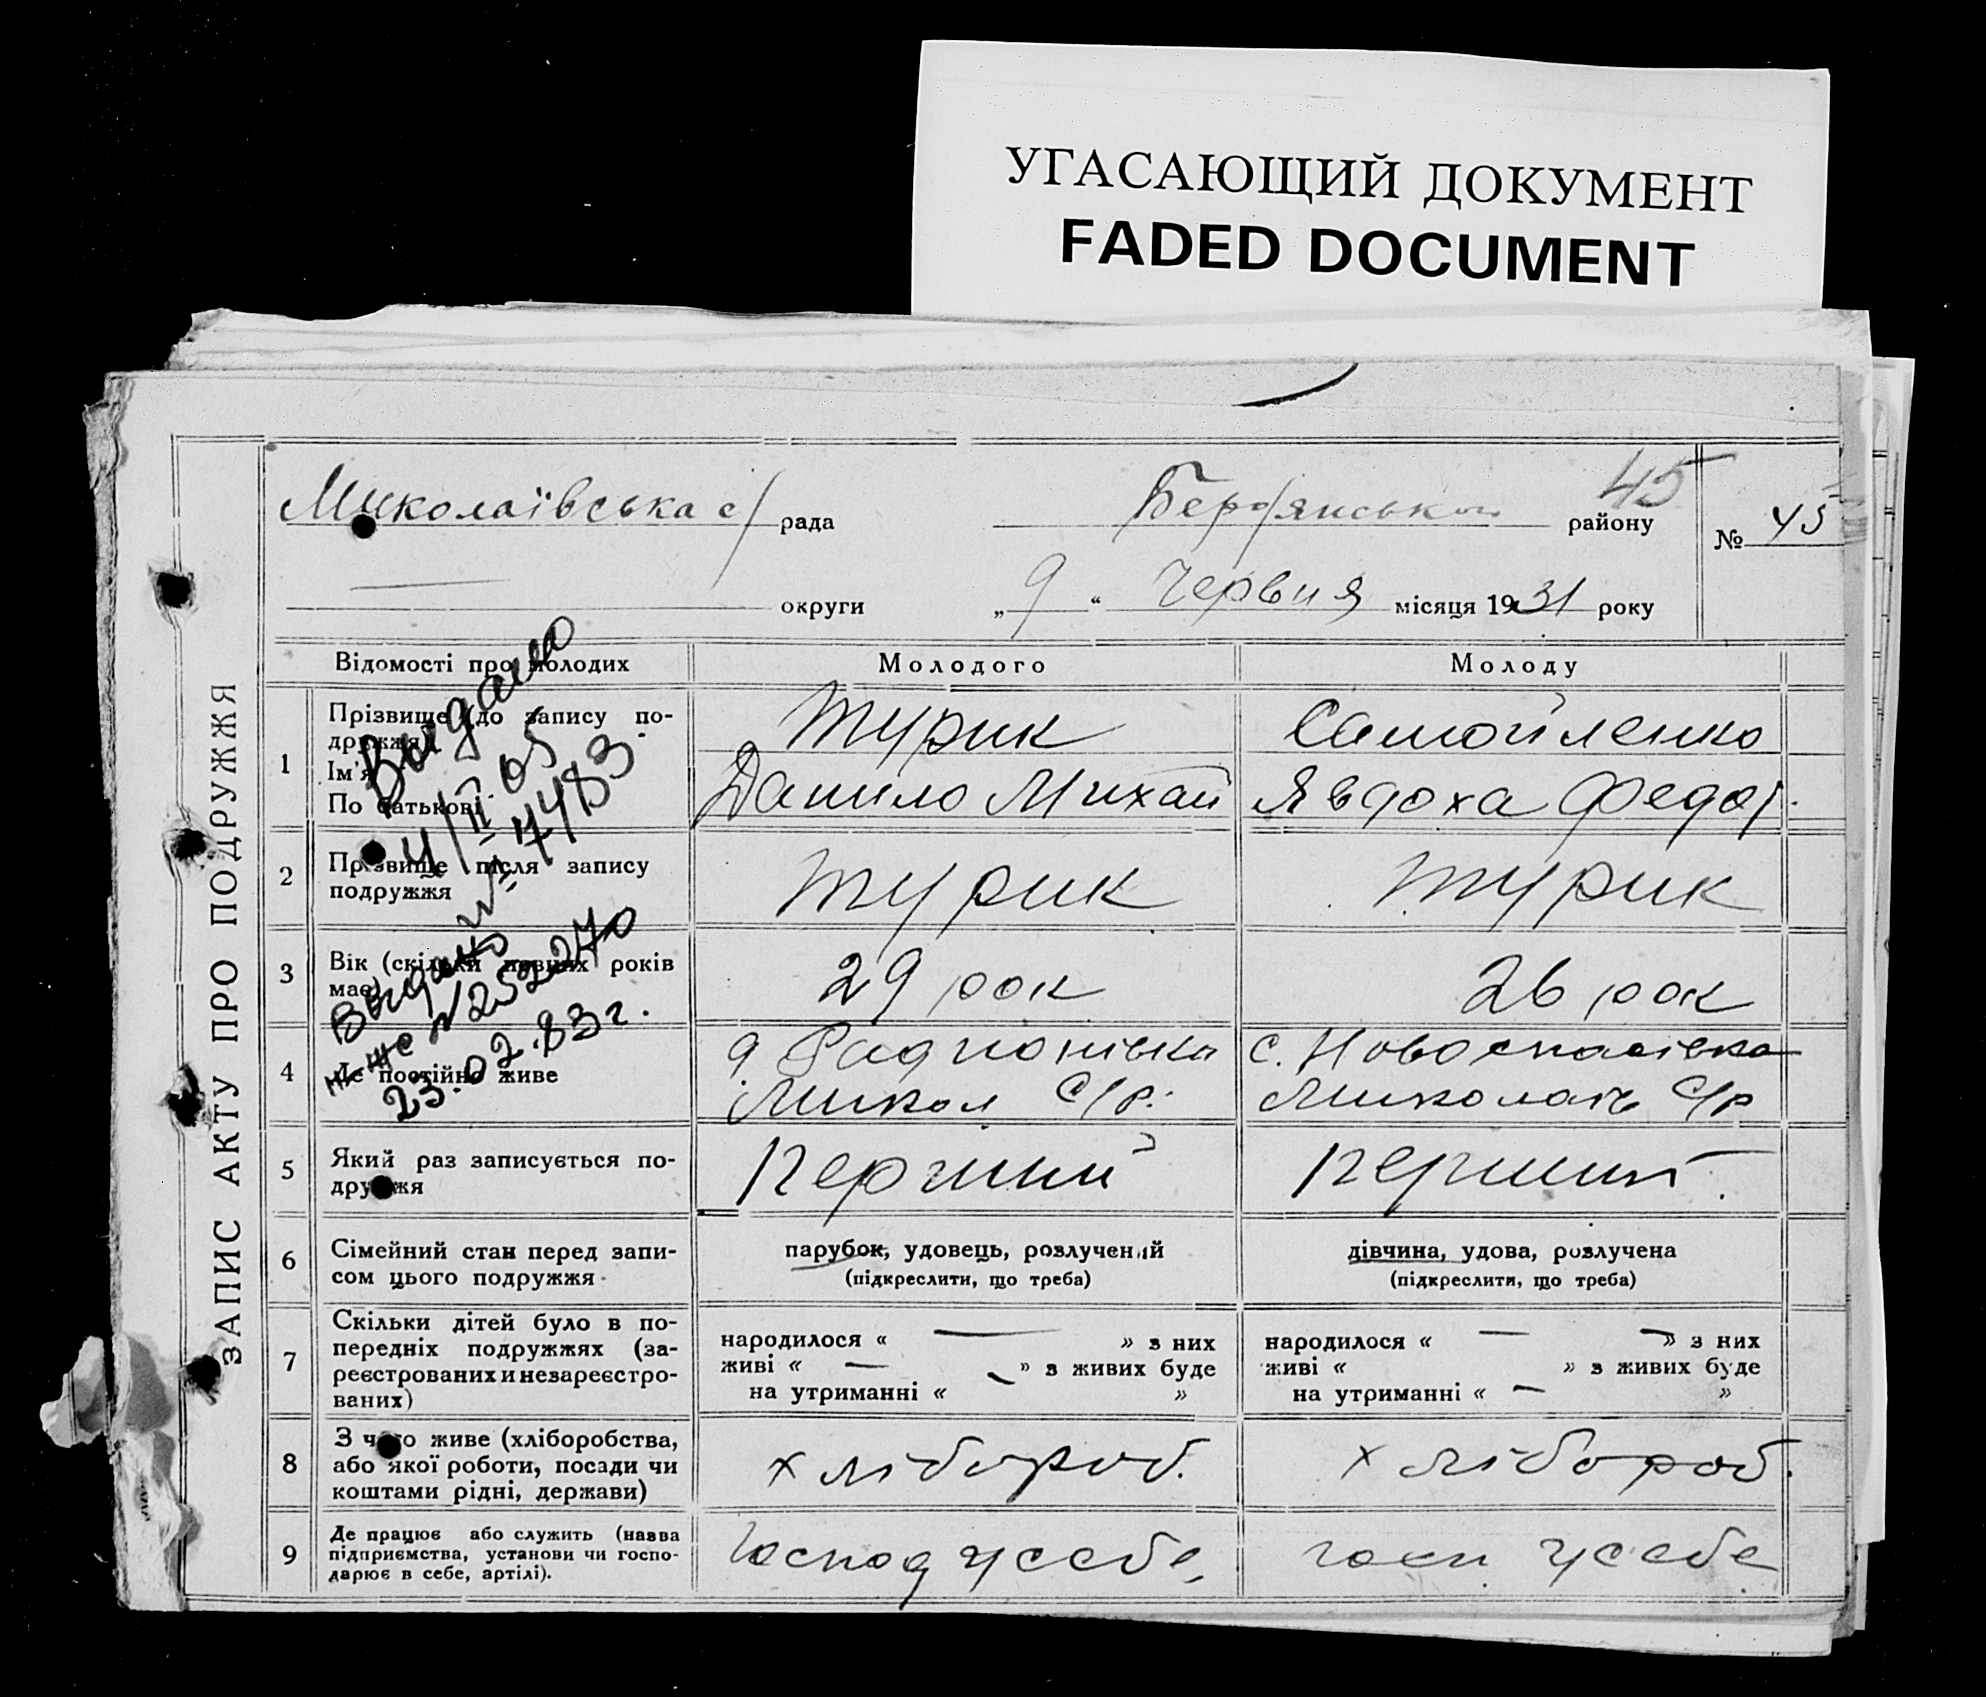 УГАСАЮЩИЙ ДОКУМЕНТ
FADED DOCUMENT
ЗАПИС АКТУ ПРО ПОДРУЖЖЯ
Миколаївська с/рада Бердянськ району 45 № 45
округи „9“ Червня місяця 1931 року
Відомості про молодих Молодого Молоду
1 Прізвище (до запису подружжя) Турик Самойленко
Ім'я
По батькові Данило Михай Явдоха Федор.
2 Прізвище після запису
подружжя Турик Турик
3 Вік (скільки повних років
має) 29 рок 26 рок
4 Де постійно живе Радионівка с. Новоспасівка
Микол С/р. Миколаїв С/р
5 Який раз записується по-
дружжя Перший Перший
6 Сімейний стан перед запи-
сом цього подружжя
парубок, удовець, розлучений
(підкреслити, що треба)
дівчина, удова, розлучена
(підкреслити, що треба)
7 Скільки дітей було в по-
передніх подружжях (за-
реєстрованих и незареєстро-
ваних)
народилося « — » з них
живі « — » з живих буде
на утриманні « — »
народилося « — » з них
живі « » з живих буде
на утриманні « — »
8 З чого живе (хліборобства,
або якої роботи, посади чи
коштами рідні, держави)
хлібороб. хлібороб.
9 Де працює або служить (назва
підприємства, установи чи госпо-
дарює в себе, артілі).
Господ у себе, госп у себе
Выдано
4/II 65
№ 7483.
Выдано
№252270
23.02.83г.